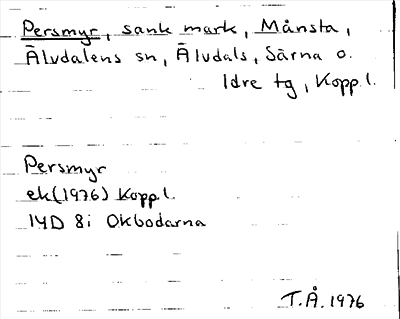 Persmyr, sank mark, Månsta,
Älvdalens sn, Älvdals, Särna o.
Idre tg, Kopp.l.
Persmyr
ek(1976) Kopp.l.
14D 8i Okbodarna
T.Å. 1976